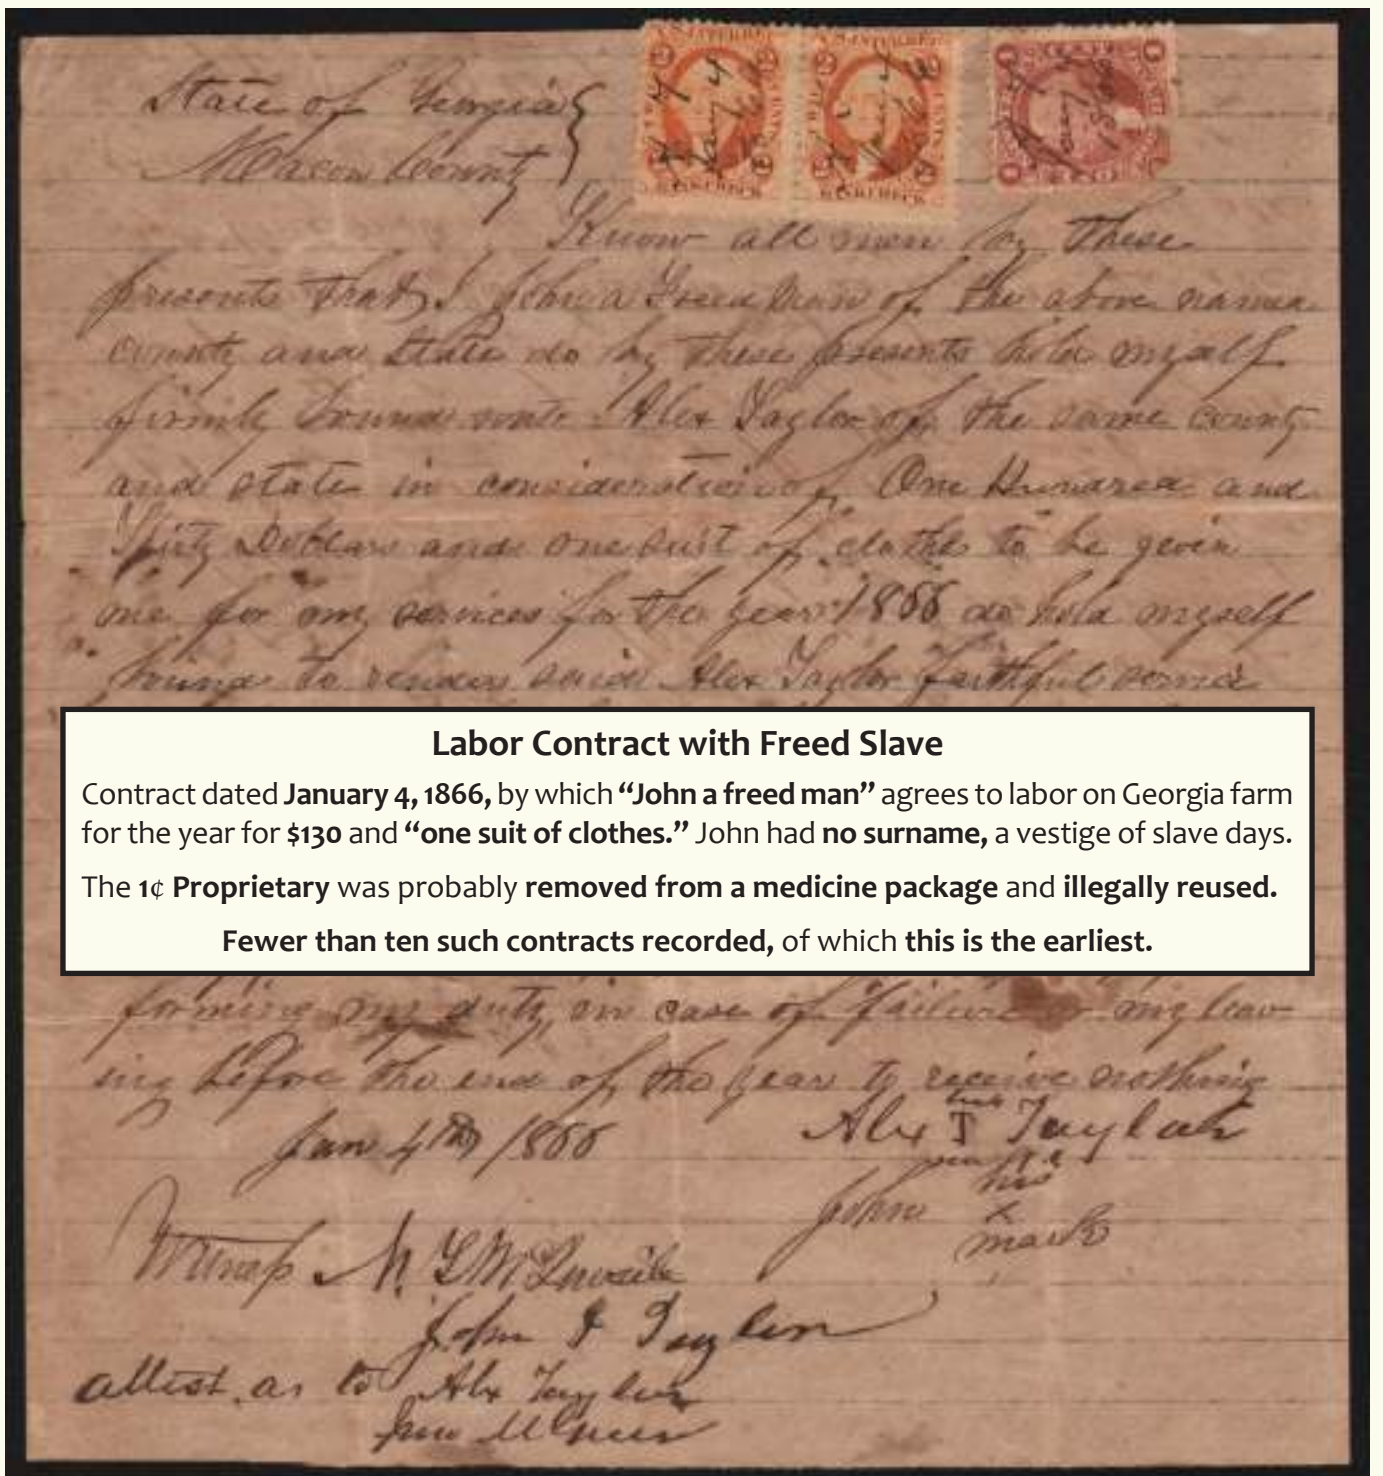 State of Georgia
Macon County
Know all men by these
presents that I John a Freed man of the above named
county and State do by these presents hold myself
firmly bound unto Alex Taylor of the same county
and state in consideration of One Hundred and
Thirty Dollars and one suit of clothes to be given
me for my services for the year 1866 do hold myself
bound to render said Alex Taylor faithful service
Labor Contract with Freed Slave
Contract dated January 4, 1866, by which “John a freed man” agrees to labor on Georgia farm
for the year for $130 and “one suit of clothes.” John had no surname, a vestige of slave days.
The 1¢ Proprietary was probably removed from a medicine package and illegally reused.
Fewer than ten such contracts recorded, of which this is the earliest.
forming my duty, in case of failure or my leav
ing before the end of the year to receive nothing
Jan 4th 1866
Alex T Taylor
his
John X
mark
Witness
John F Taylor
attest as to Alx Taylor